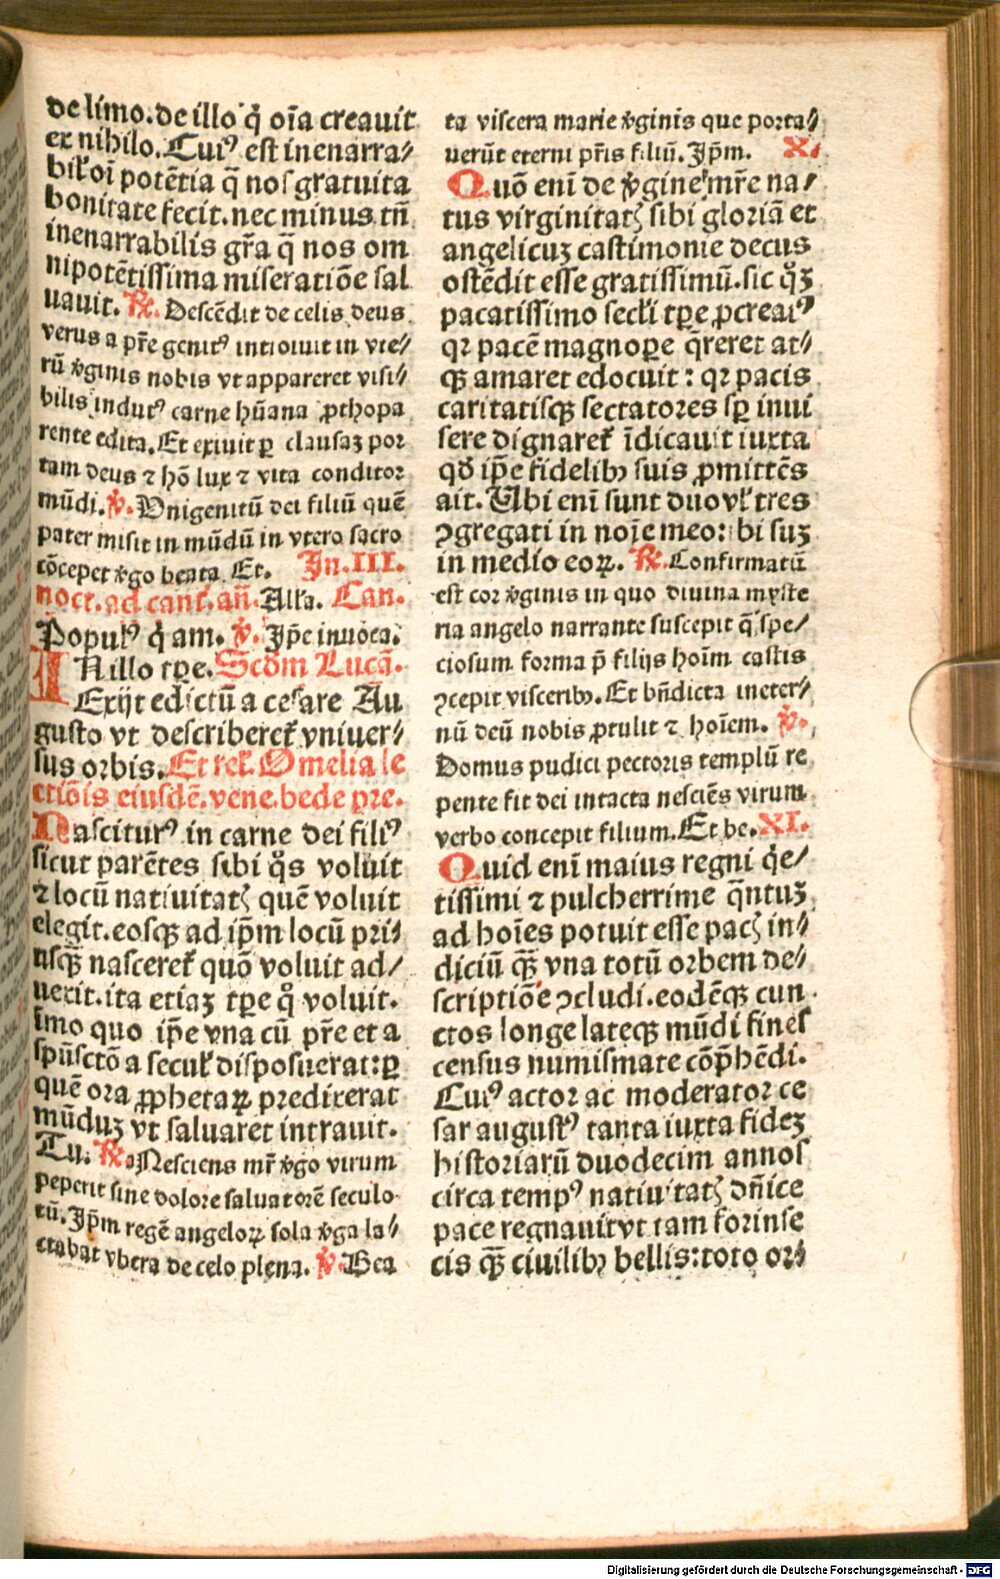 de limo. de illo q̇ oīa creauit
ex nihilo. Cuiꝰ est inenarra⸗
bil̓ oı̄potētia q̄ nos gratuita
bonitate fecit. nec minus tn̄
inenarrabilis gr̄a q̄ nos om
nipotētissima miseratiōe sal
uauit. ℟. Descēdit de celis deus
verus a pr̄e genitꝰ introiuit in vte⸗
rū v̓ginis nobis vt appareret visi⸗
bilis indutꝰ carne hūana ꝓthopa
rente edita. Et exiuit ꝑ clausaʒ por
tam deus ⁊ hō lux ⁊ vita conditor
mūdi. ℣. Unigenitū dei filiū quē
pater misit in mūdū in vtero sacro
cōcepet v̓go beata. Et. In. III.
noct. ad cant̓. an̄. Alła. Can.
Populꝰ q̇ am. ℣. Ip̄e inuoca.
IN illo tꝑe. Scd̄m Lucā.
Exijt edictū a cesare Au
gusto vt describeret̓ vniuer⸗
sus orbis. Et rel̓. Omelia le
ctiōis eiusdē. vene. bede pre.
Nasciturꝰ in carne dei filiꝰ
sicut parētes sibi q̊s voluit
⁊ locū natiuitatꝭ quē voluit
elegit. eosqꝫ ad ip̄m locū pri⸗
usqꝫ̄ nasceret̓ quō voluit ad⸗
uexit. ita etiaʒ tꝑe q̊ voluit.
īmo quo ip̄e vna cū pr̄e et a
spūsctō a secul̓ disposuerat: ꝑ
quē ora ꝓphetaꝝ predixerat
mūduʒ vt saluaret intrauit.
Tu. ℟. Nesciens mr̄ v̓go virum
peperit sine dolore saluatorē seculo
rū. Ip̄m regē angeloꝝ sola v̓go la⸗
ctabat vbera de celo plena. ℣. Bea
ta viscera marie v̓ginis que porta⸗
uerūt eterni pr̄is filiū. Ip̄m. X.
Quō enī de v̓gine mr̄e na⸗
tus virginitatꝭ sibi gloriā et
angelicuʒ castimonie decus
ostēdit esse gratissimū. sic q̊ʒ
pacatissimo secl̓i tꝑe ꝓcreaiꝰ
qꝛ pacē magnopere q̄reret at⸗
qꝫ amaret edocuit: qꝛ pacis
caritatisqꝫ sectatores sꝑ inui
sere dignaret̓ īdicauit iuxta
qd̓ ip̄e fidelibꝫ suis ꝓmittēs
ait. Ubi enī sunt duo vl̓ tres
ꝯgregati in noı̄e meo: ibi suʒ
in medio eoꝝ. ℟. Confirmatū
est cor v̓ginis in quo diuina myste
ria angelo narrante suscepit q̄ spe⸗
ciosum forma p̄ filijs hoīm castis
ꝯcepit visceribꝫ. Et bn̄dicta in eter⸗
nū deū nobis ꝓtulit ⁊ hoīem. ℣.
Domus pudici pectoris templū re
pente fit dei intacta nesciēs virum
verbo concepit filium. Et be. XI.
Quid enī maius regni q̇e⸗
tissimi ⁊ pulcherrime q̄ntuʒ
ad hoīes potuit esse pacꝭ in⸗
diciū qꝫ̄ vna totū orbem de⸗
scriptiōe ꝯcludi. eodēqꝫ cun
ctos longe lateqꝫ mūdi fines
census numismate cōp̄hēdi.
Cuiꝰ actor ac moderator ce
sar augustꝰ tanta iuxta fideʒ
historiarū duodecim annos
circa tempꝰ natiuitatꝭ dn̄ice
pace regnauit vt tam forinse
cis qꝫ̄ ciuilibꝫ bellis: toto or⸗
Digitalisierung gefördert durch die Deutsche Forschungsgemeinschaft - DFG